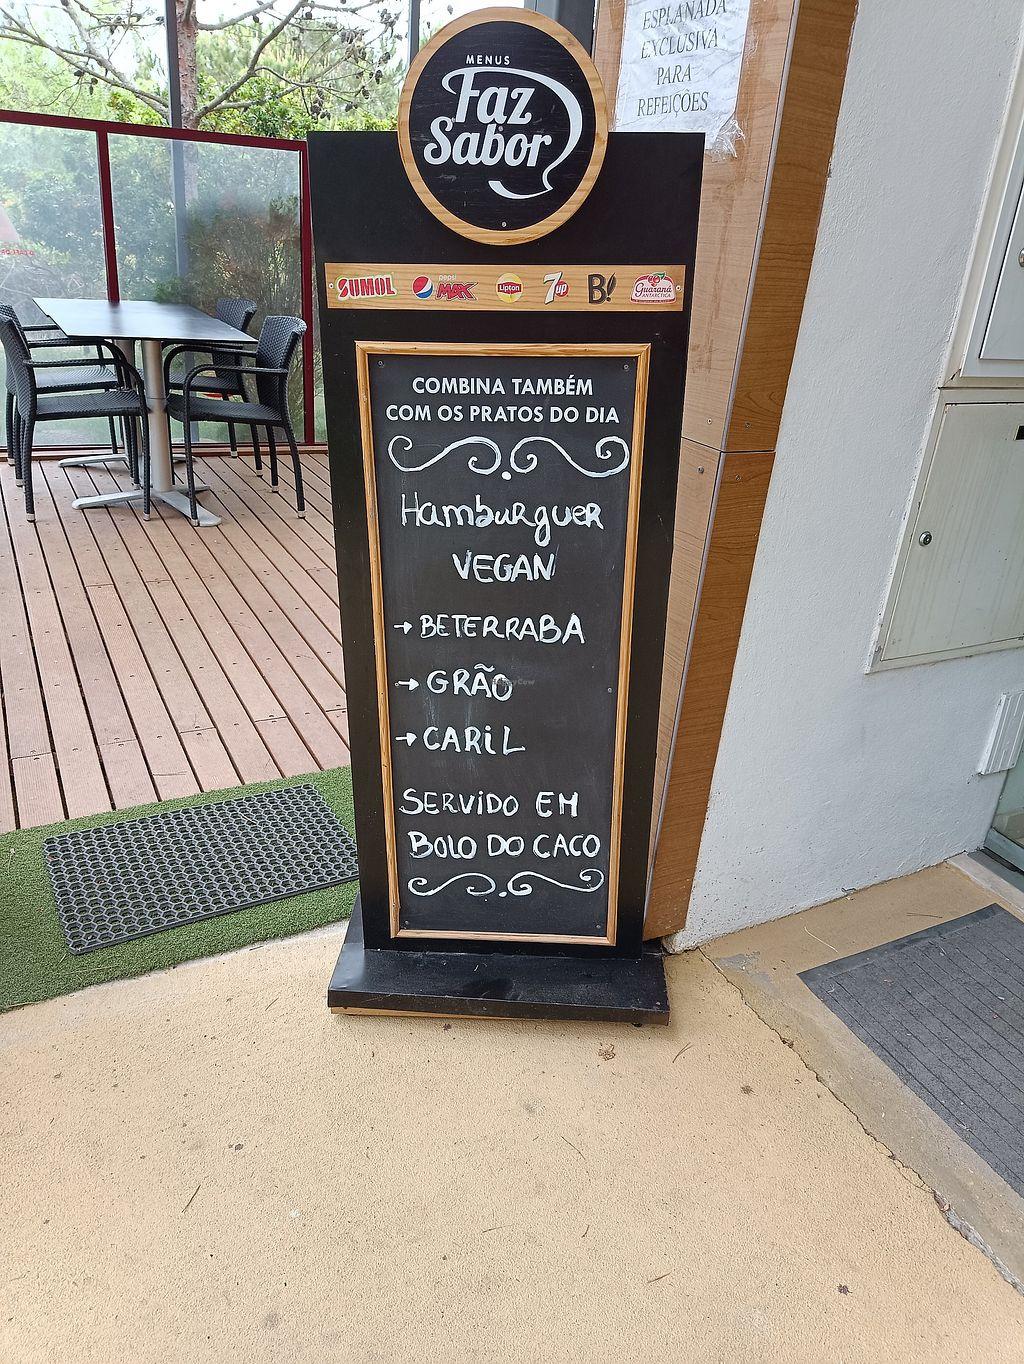 ESPLANADA
EXCLUSIVA
PARA
REFEIÇÕES
MENUS
Faz
Sabor
SUMOL pepsi MAX Lipton 7up B! Guaraná ANTARCTICA
COMBINA TAMBÉM
COM OS PRATOS DO DIA
Hamburguer
VEGAN
→ BETERRABA
→ GRÃO
→ CARIL
SERVIDO EM
BOLO DO CACO